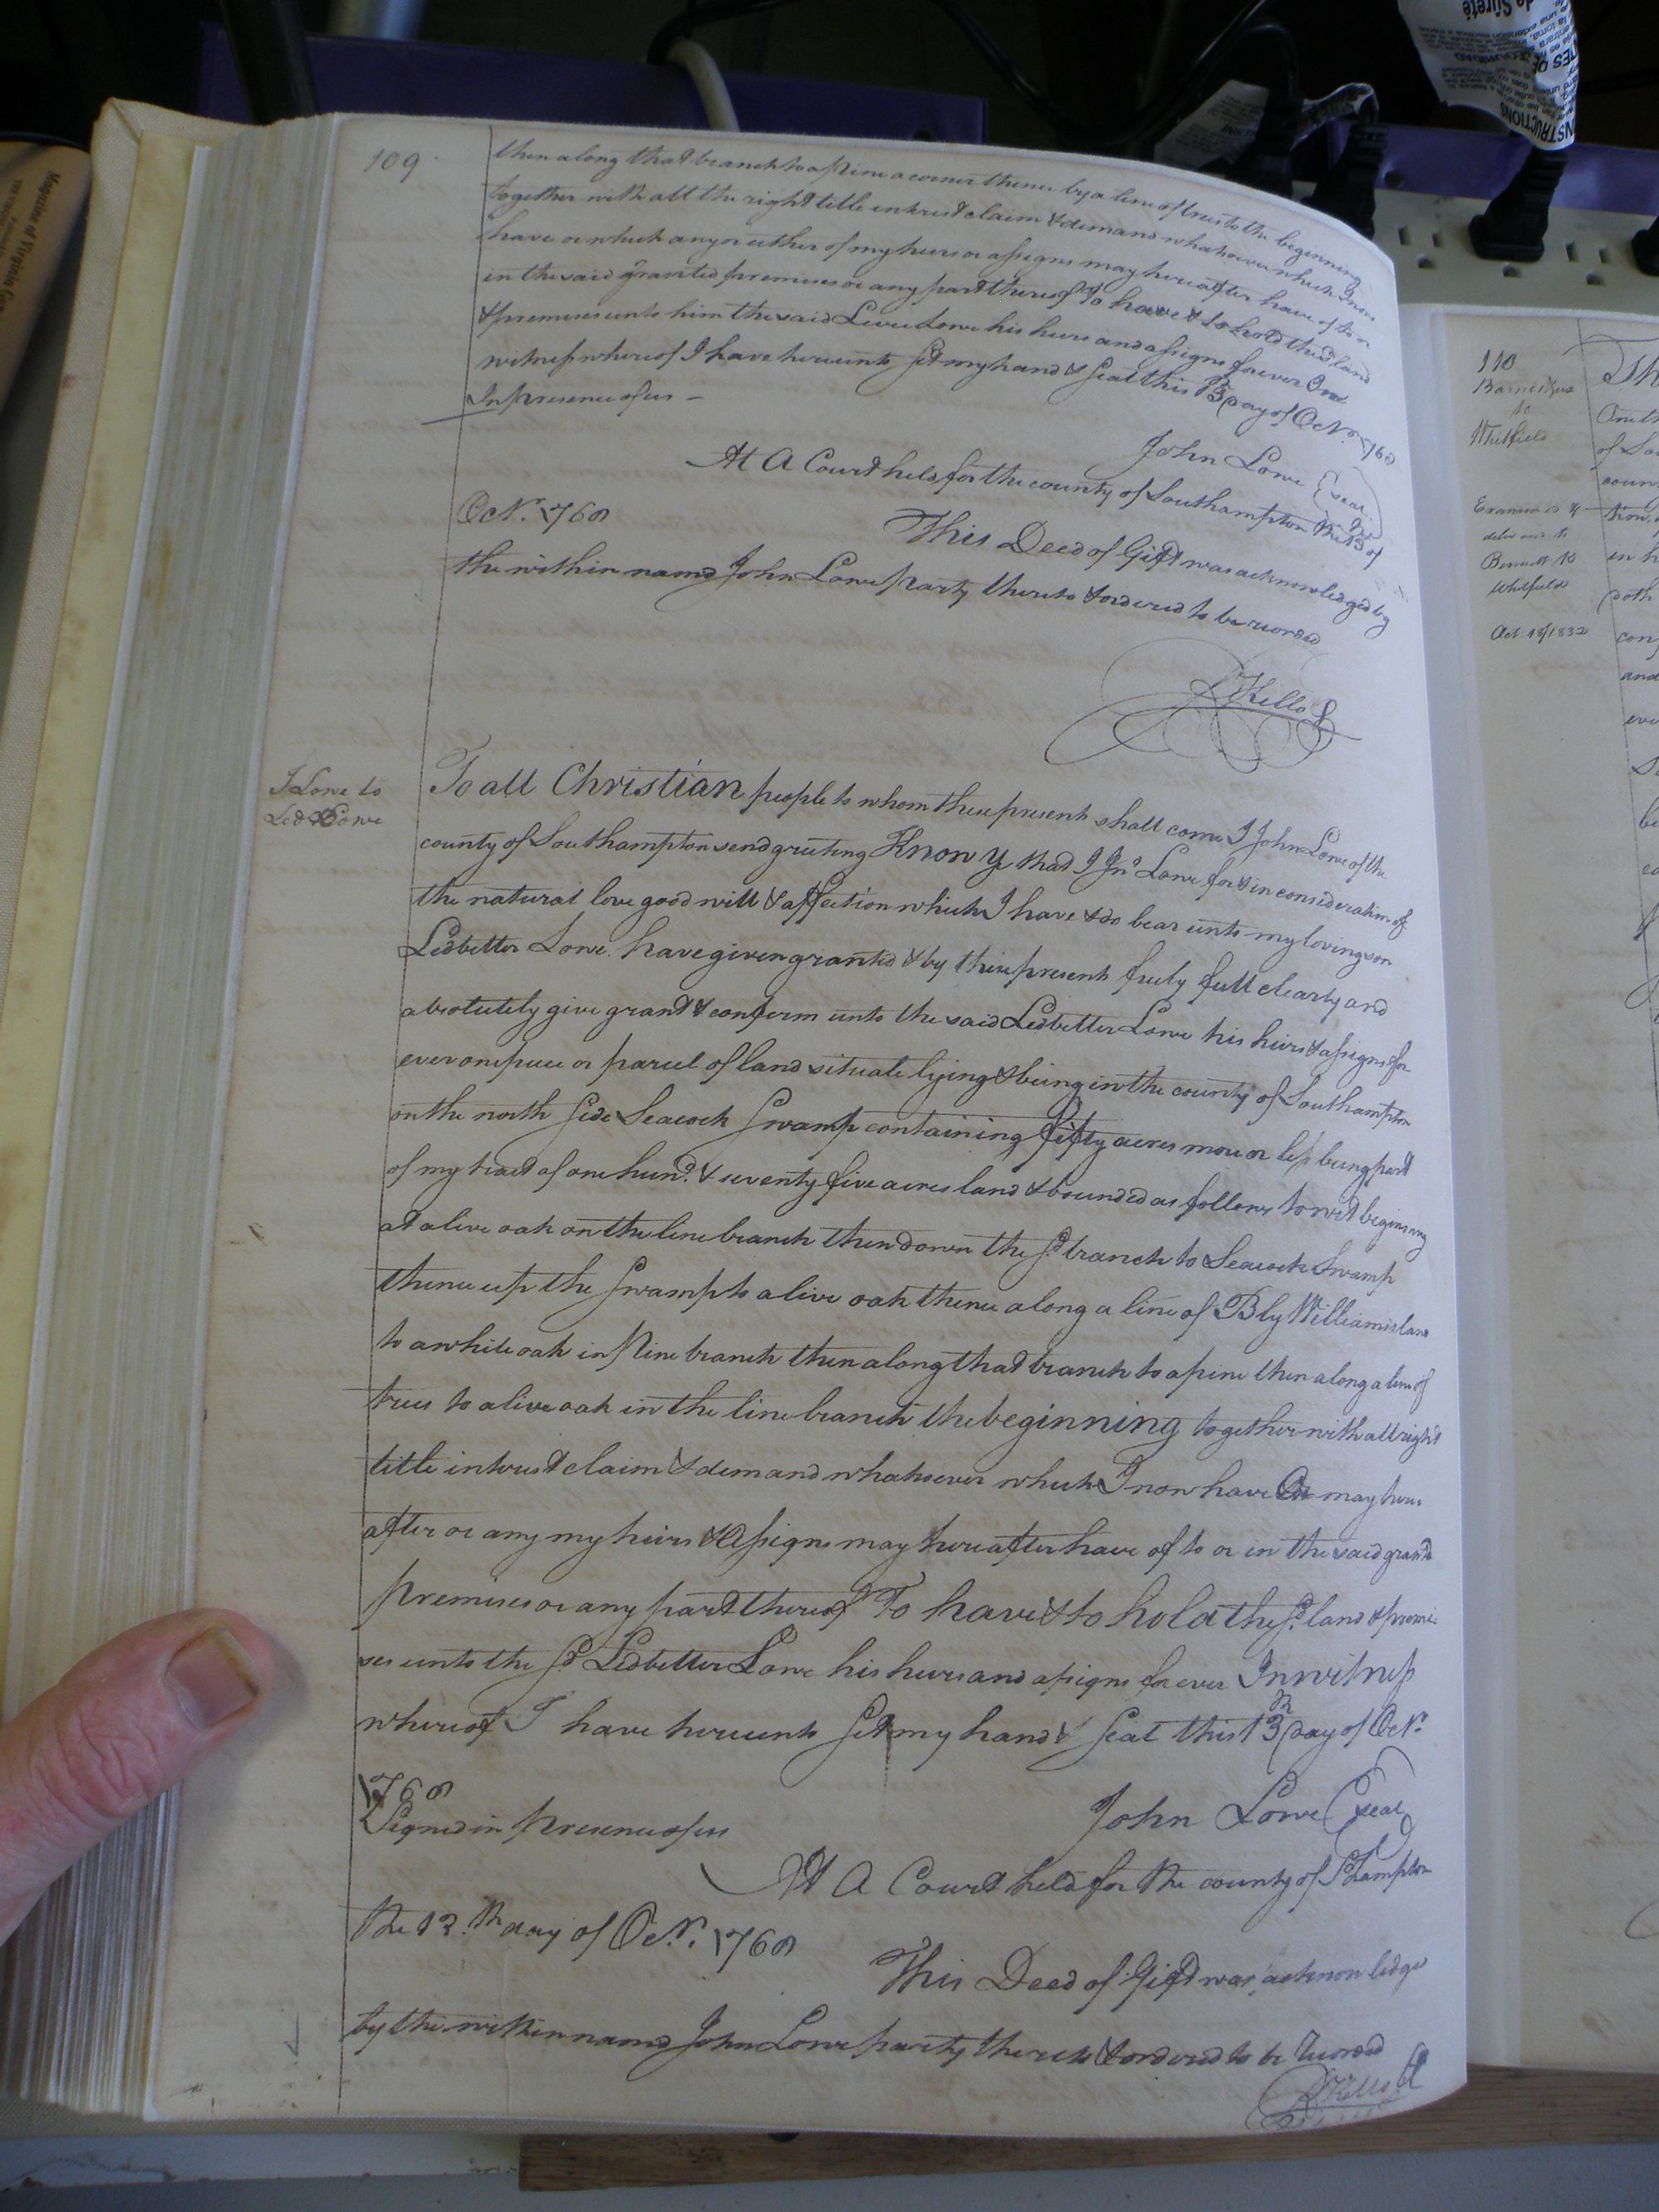 109
then along that branch to a pine a corner thence by a line of trees to the beginning
together with all the right title intrest claim & demand whatsoever which I now
have or which any or either of my heirs or assigns may hereafter have of to or
in the said granted premises or any part thereof To have & to hold the sd land
& premises unto him the said Levi Lowe his heirs and assigns forever In
witness whereof I have hereunto set my hand & seal this 13 Day of Octr. 1768
In presence of us –
John Lowe (seal)
At A Court held for the county of Southampton the 13th of
Octr. 1768
This Deed of Gift was acknowledged by
the within namd John Lowe party thereto & ordered to be recorded
R Kello
J Lowe to
Led Lowe
To all Christian people to whom these present shall come I John Lowe of the
county of Southampton send greeting Know ye that I Jno. Lowe for & in consideration of
the natural love good will & affection which I have & do bear unto my loving son
Ledbetter Lowe. have given granted & by these present freely full clearly and
absolutely give grant & confirm unto the said Ledbetter Lowe his heirs & assigns for
ever one piece or parcel of land situate lying & being in the county of Southampton
on the north side Seacock Swamp containing fifty acres more or less being part
of my tract of one hund. & seventy five acres land & bounded as follows to wit beginning
at a live oak on the line branch then down the sd branch to Seacock Swamp
thence up the Swamp to a live oak thence along a line of Bly Williams's land
to a white oak in Pine branch then along that branch to a pine then along a line of
trees to a live oak in the line branch the beginning together with all right
title intrest claim & demand whatsoever which I now have Or may here
after or any my heirs & Assigns may hereafter have of to or in the said grantd
premises or any part thereof To have & to hold the sd. land & premi
ses unto the sd Ledbetter Lowe his heirs and assigns forever In witness
whereof I have hereunto set my hand & seal this 13th Day of Octr.
1768
Signed in Presence of us
John Lowe (seal)
At A Court held for the county of SHampton
the 13.th day of Octr. 1768
This Deed of Gift was acknowledge
by the within namd John Lowe party thereto & ordered to be Recorded
R Kello
110
Barnes &ux
to
Whitfield
Examined &
delivered to
Bennett
Whitfield
Oct: 18/1832
Th
South
of So
coun
tion
in h
doth
con
and
eve
be
Magazine of Virginia Ge
de Sûreté
INSTRUCTIONS